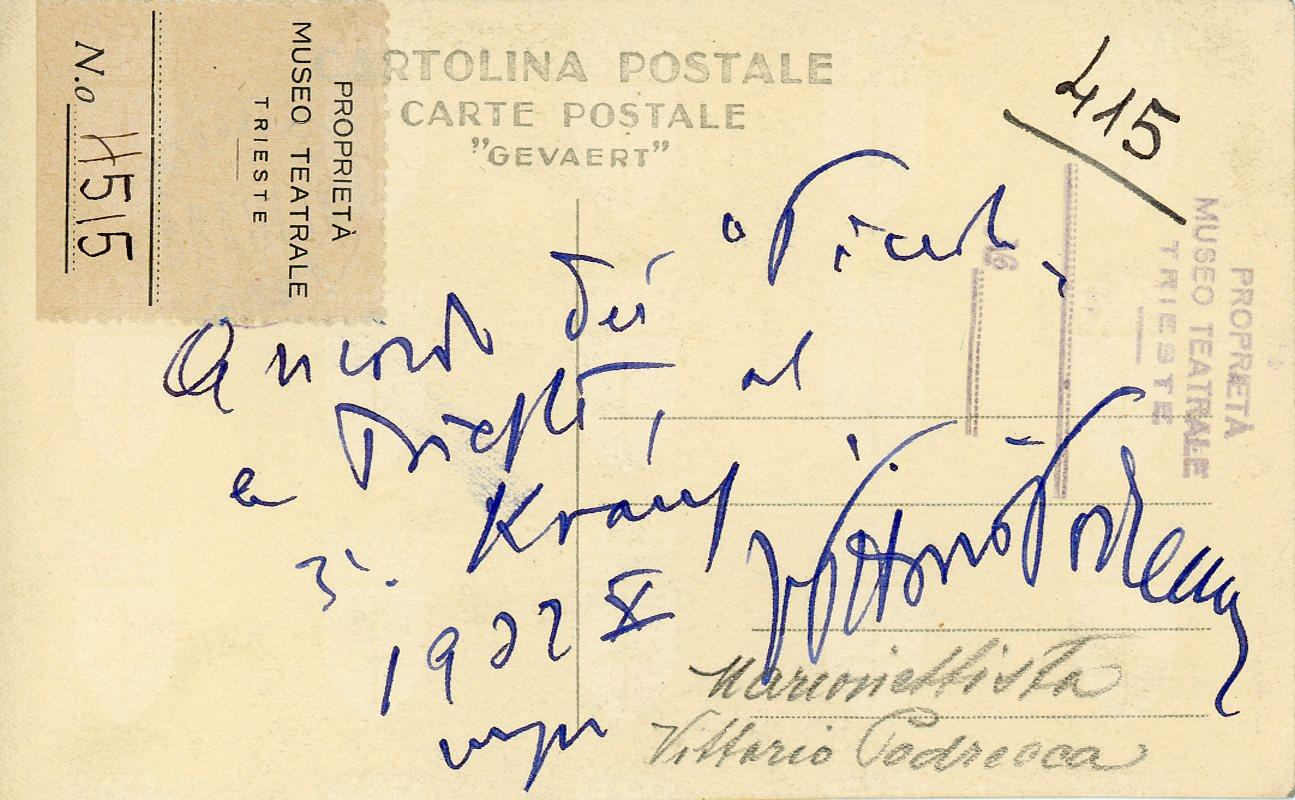 PROPRIETÀ
MUSEO TEATRALE
TRIESTE
N.o 4515
CARTOLINA POSTALE
CARTE POSTALE
"GEVAERT"
415
PROPRIETÀ
MUSEO TEATRALE
TRIESTE
dei "Piccoli"
a Trieste, al
1932 X
Vittorio Podrecca
Marionettista
Vittorio Podrecca